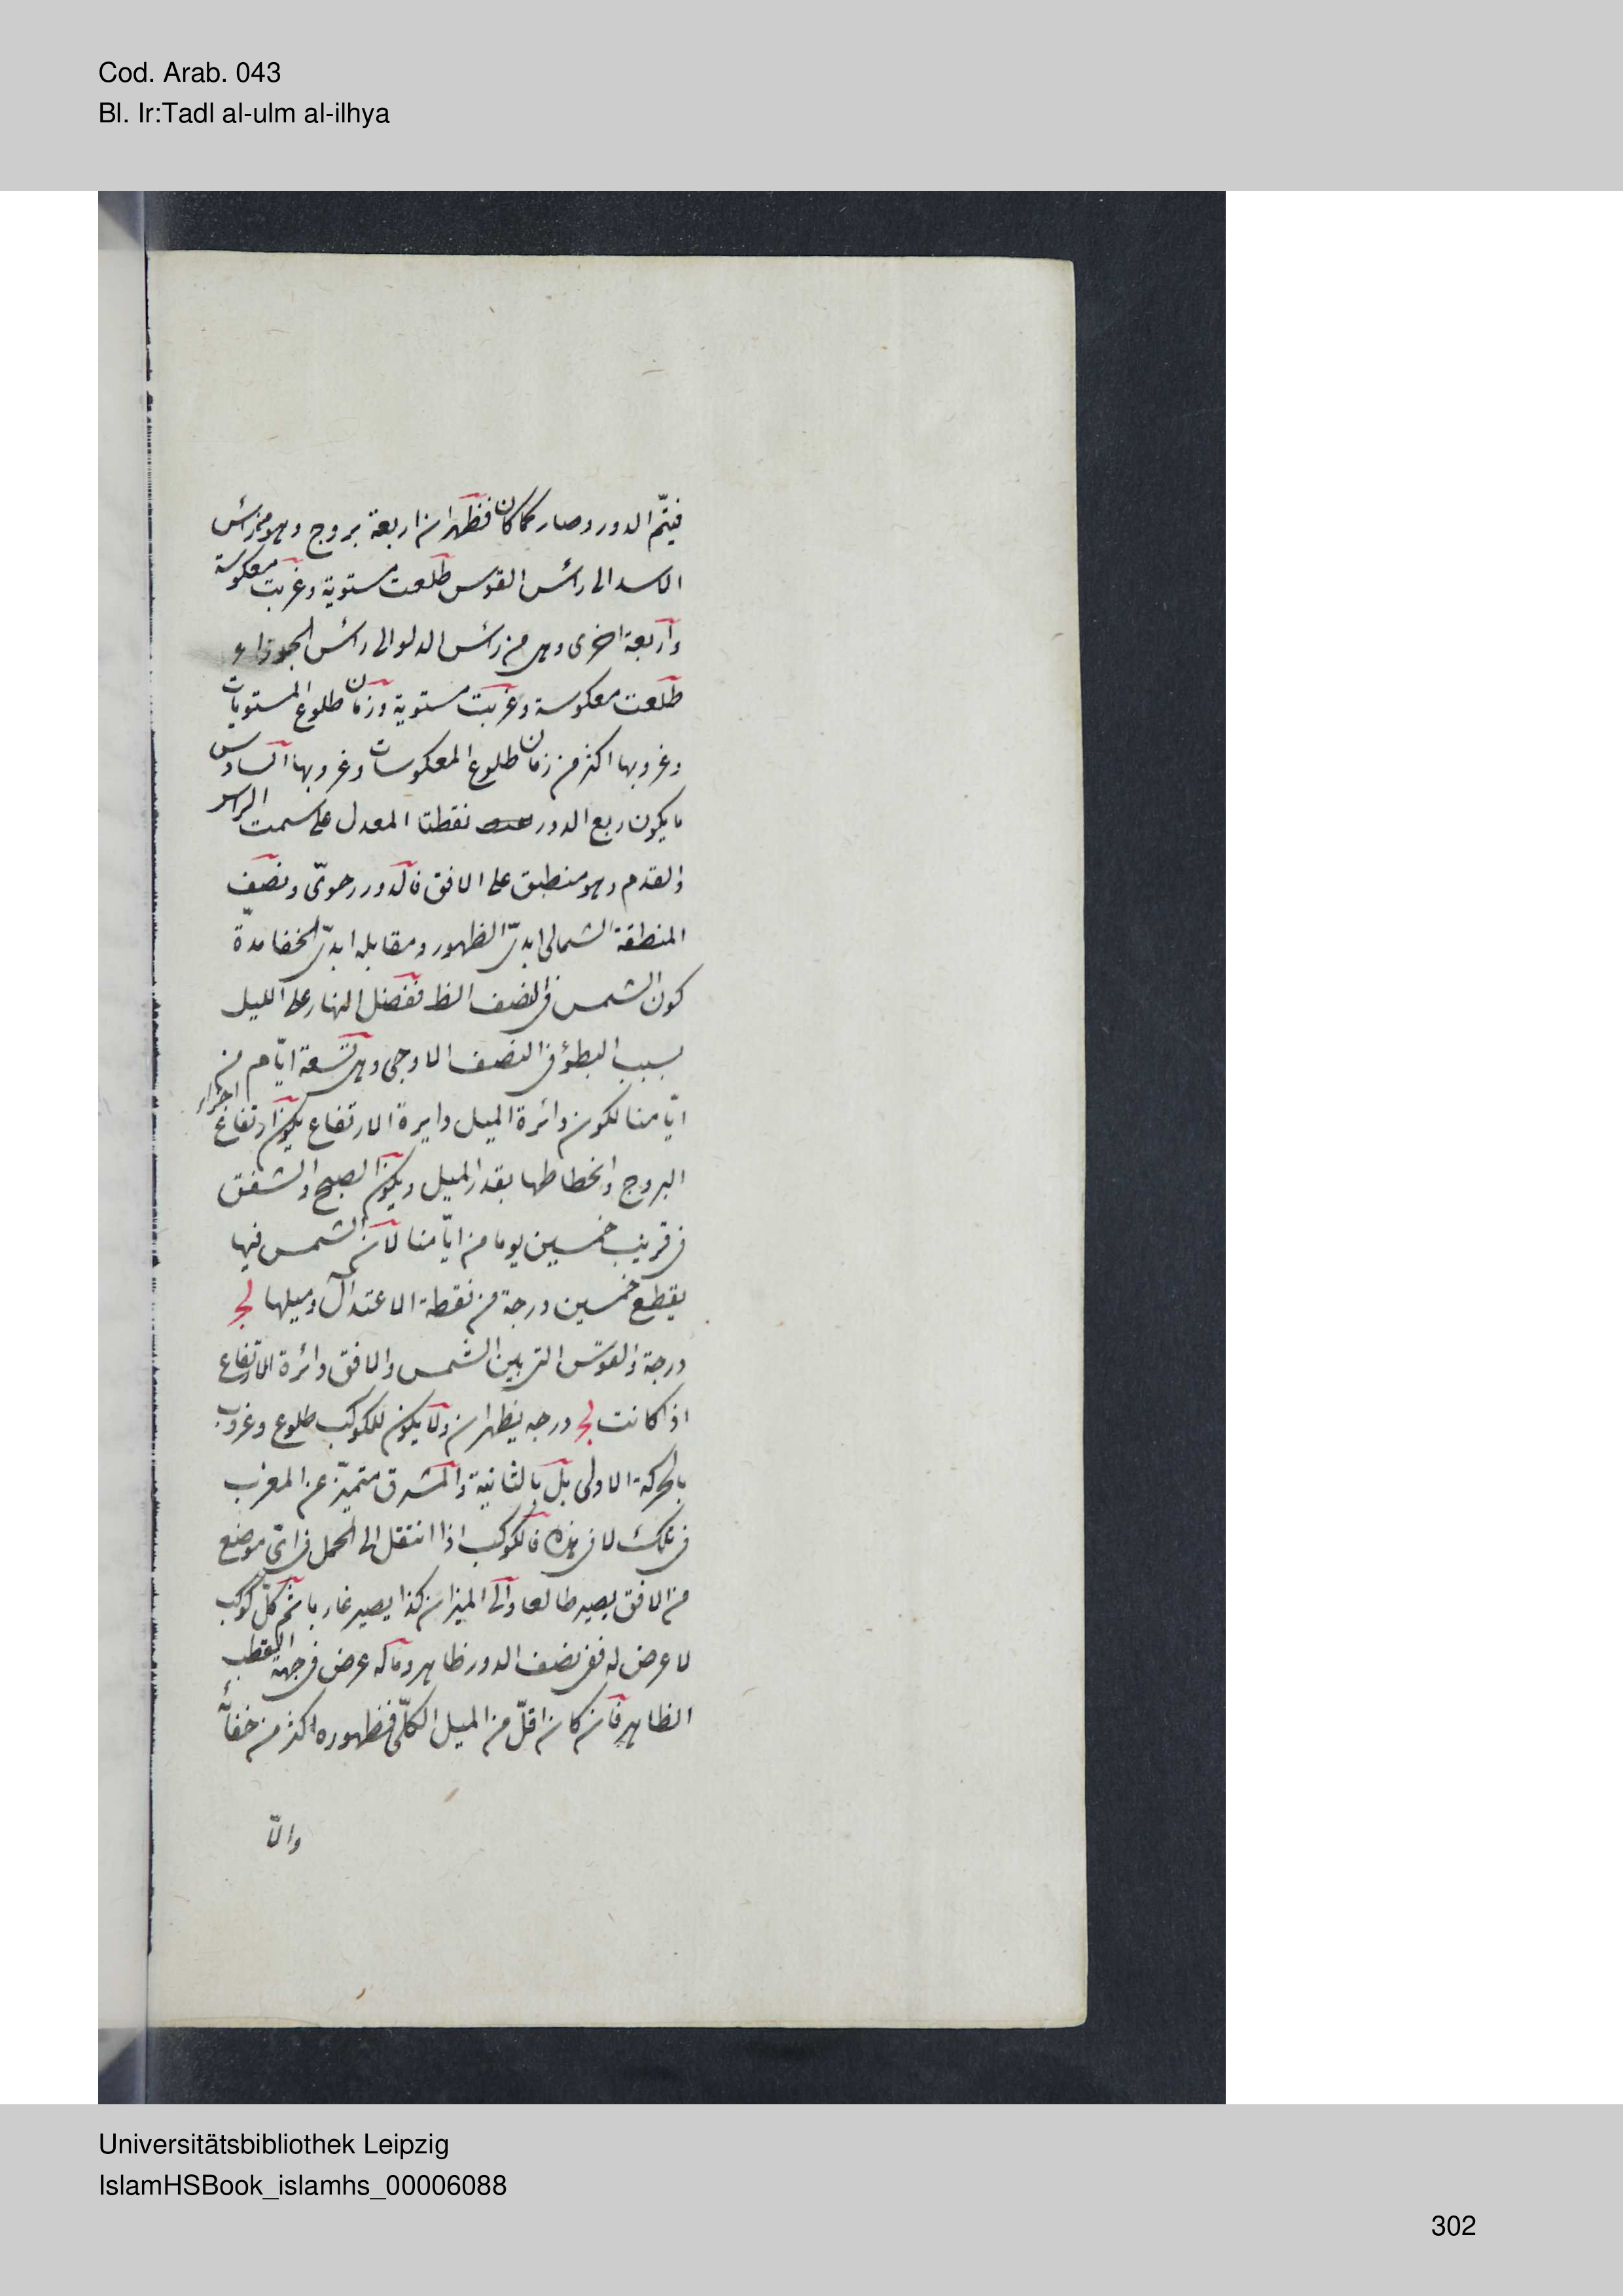 Cod. Arab. 043
Bl. Ir:Tadl al-ulm al-ilhya
فيتمّ الدور وصار كما كان فظهر ان اربعة بروج وهو من رأس
الاسد الى رأس القوس طلعت مستوية وغربت معكوسة
واربعة اخرى وهى من رأس الدلو الى رأس الجوزاء
طلعت معكوسة وغربت مستوية وزمان طلوع المستويات
وغروبها اكثر من زمان طلوع المعكوسات وغروبها السادس
ما يكون ربع الدور نقطتا المعدل على سمت الراس
والقدم وهو منطبق على الافق فالدور رحوىّ ونصف
المنطقة الشمالى ابدىّ الظهور ومقابله ابدىّ الخفا مدة
كون الشمس فى النصف الظ تفضل النهار على الليل
بسبب البطؤ فى النصف الاوجى وهى تسعة ايّام من
ايّامنا لكون دائرة الميل دايرة الارتفاع يكون ارتفاع اجزاء
البروج وانحطاطها بقدر الميل ويكون الصبح والشفق
فى قريب خمسين يوما من ايّامنا لان الشمس فيها
يقطع خمسين درجة من نقطة الاعتدال وميلها لج
درجة والقوس التى بين الشمس والافق دائرة الارتفاع
اذا كانت لج درجه يظهران ولا يكون للكوكب طلوع وغروب
بالحركة الاولى بل بالثانية والمشرق متميّز عن المغرب
فى تلك لا فى هذه فالكوكب اذا انتقل الى الحمل فى اىّ موضع
من الافق يصير طالعا والى الميزان كذا يصير غاربا ثم كلّ كوكب
لا عرض له ففى نصف الدور ظاهر وما له عرض فى جهة القطب
الظاهر فان كان اقلّ من الميل الكلّى فظهوره اكثر من خفائه
والّا
Universitätsbibliothek Leipzig
IslamHSBook_islamhs_00006088
302